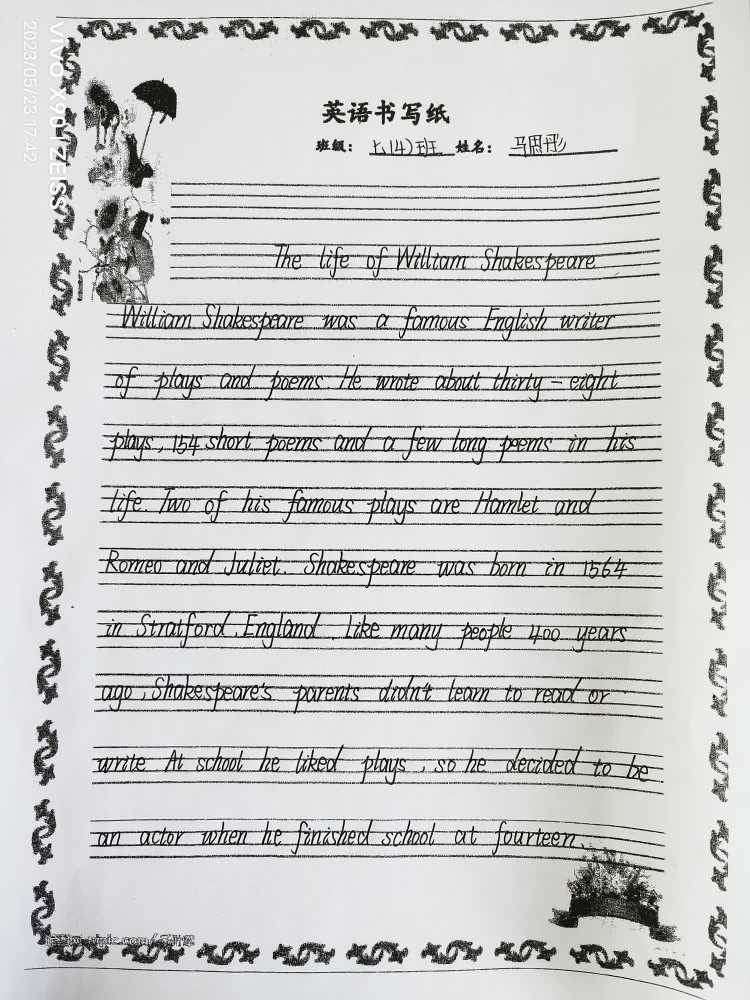 英语书写纸
班级： 七(4)班 姓名： 马思彤
The life of William Shakespeare
William Shakespeare was a famous English writer
of plays and poems. He wrote about thirty-eight
plays, 154 short poems and a few long peems in his
life. Two of his famous plays are Hamlet and
Romeo and Juliet. Shakespeare was born in 1564
in Stratford, England. Like many people 400 years
ago, Shakespeare's parents didn't learn to read or
write At school he liked plays, so he decided to be
an actor when he finished school at fourteen.
vivo X90 | ZEISS
2023/05/23 17:42